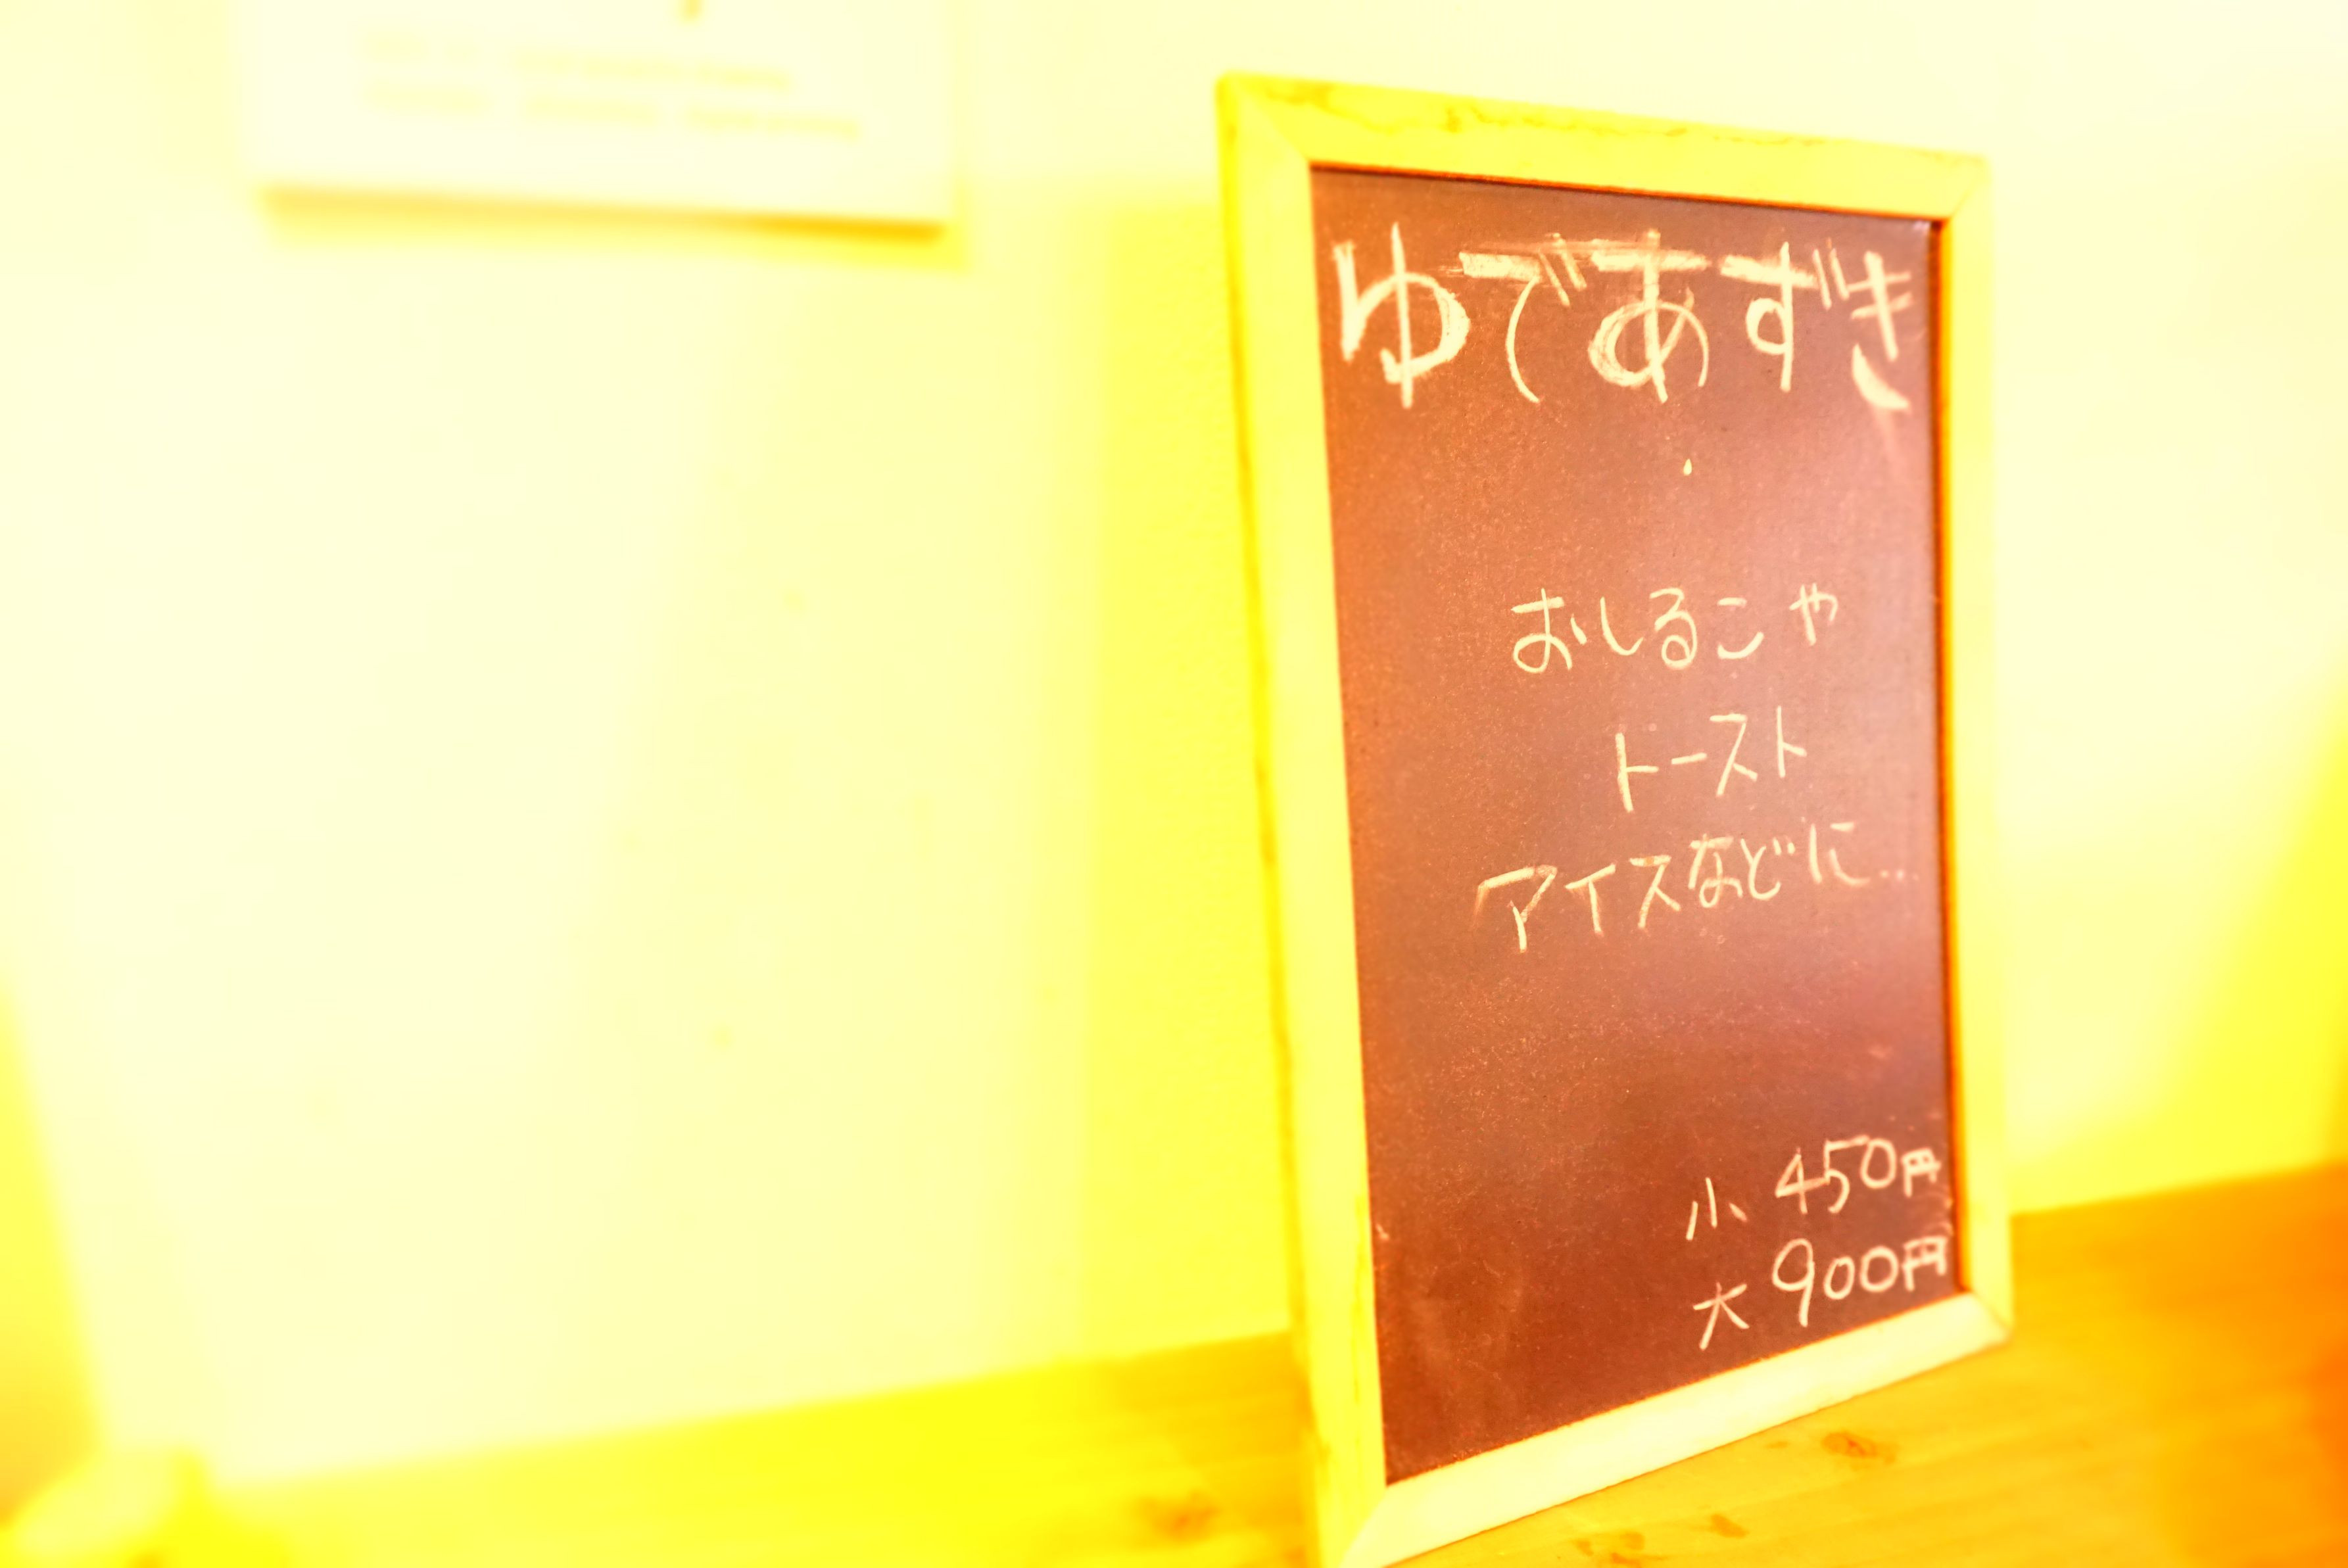 ゆであずき
おしるこや
トースト
アイスなどに...
小 450円
大 900円